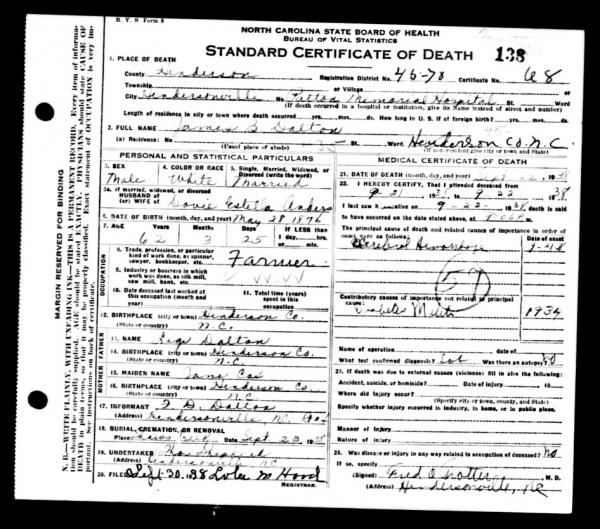 R. V. S. Form 8
NORTH CAROLINA STATE BOARD OF HEALTH
BUREAU OF VITAL STATISTICS
STANDARD CERTIFICATE OF DEATH 138
MARGIN RESERVED FOR BINDING
N. B.—WRITE PLAINLY, WITH UNFADING INK—THIS IS A PERMANENT RECORD. Every item of information should be carefully supplied. AGE should be stated EXACTLY. PHYSICIANS should state CAUSE OF DEATH in plain terms, so that it may be properly classified. Exact statement of OCCUPATION is very important. See instructions on back of certificate.
1. PLACE OF DEATH
County Henderson Registration District No. 45-70 Certificate No. 68
Township or Village
City Hendersonville Patton Memorial Hospital St. Ward
(If death occurred in a hospital or institution, give its Name instead of street and number)
Length of residence in city or town where death occurred yrs. mos. ds. How long in U. S. if of foreign birth? yrs. mos. ds.
2. FULL NAME James B Dalton
(a) Residence: No. St. Ward Henderson Co. N.C.
(Usual place of abode) (If non-resident give city or town and State)
PERSONAL AND STATISTICAL PARTICULARS
3. SEX Male
4. COLOR OR RACE White
5. Single, Married, Widowed, or Divorced (write the word) Married
5a. If married, widowed, or divorced
HUSBAND of
(or) WIFE of Dovie Estella Anders
6. DATE OF BIRTH (month, day, and year) May 28 1876
7. AGE Years Months Days If LESS than
62 25 1 day, hrs.
or min.
OCCUPATION
8. Trade, profession, or particular kind of work done, as spinner, sawyer, bookkeeper, etc. Farmer
9. Industry or business in which work was done, as silk mill, saw mill, bank, etc.
10. Date deceased last worked at this occupation (month and year)
11. Total time (years) spent in this occupation
12. BIRTHPLACE (city or town) Henderson Co.
(State or country) N.C.
FATHER
13. NAME Dalton
14. BIRTHPLACE (city or town) Henderson Co.
(State or country) N.C.
MOTHER
15. MAIDEN NAME Jane Cox
16. BIRTHPLACE (city or town) Henderson Co.
(State or country) N.C.
17. INFORMANT Dalton
(Address) Hendersonville, N.C.
18. BURIAL, CREMATION, OR REMOVAL
Place Date Sept 23 1938
19. UNDERTAKER Thos Shepherd
(Address) Hendersonville NC
20. FILED Sept 30 1938
REGISTRAR.
MEDICAL CERTIFICATE OF DEATH
21. DATE OF DEATH (month, day, and year) Sept 22 1938
22. I HEREBY CERTIFY, That I attended deceased from
9-21 1938 to 9-22 1938
I last saw h alive on 9-22 1938 death is said
to have occurred on the date stated above, at m.
The principal cause of death and related causes of importance in order of onset were as follows:
Cerebral Hemorrhage 9-21-38
59
Contributory causes of importance not related to principal cause:
Diabetes 1934
Name of operation Date of
What test confirmed diagnosis? Was there an autopsy? no
23. If death was due to external causes (violence) fill in also the following:
Accident, suicide, or homicide? Date of injury 19
Where did injury occur?
(Specify city or town, county, and State)
Specify whether injury occurred in industry, in home, or in public place.
Manner of injury
Nature of injury
24. Was disease or injury in any way related to occupation of deceased? no
If so, specify
(Signed) Fred O Trotter M. D.
(Address) Hendersonville, NC